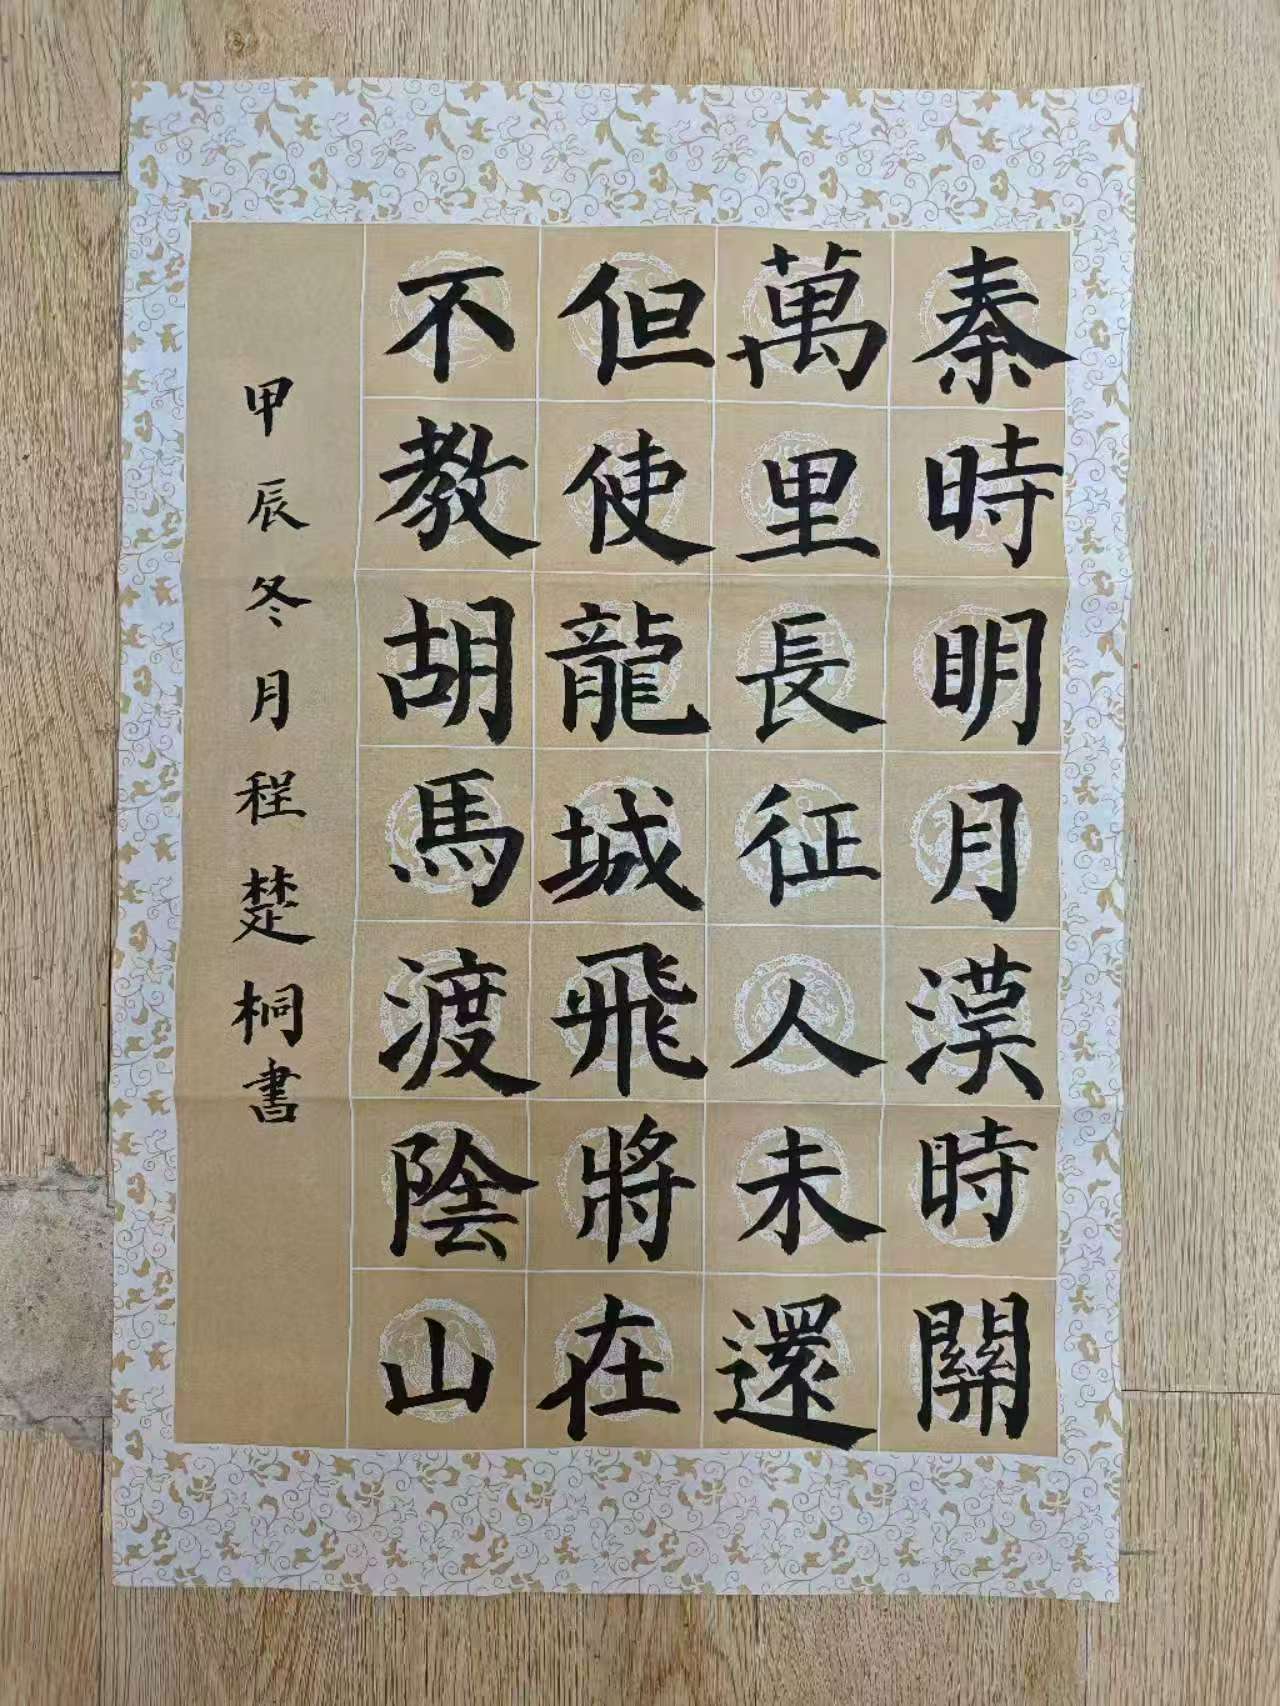 秦時明月漢時關
萬里長征人未還
但使龍城飛將在
不教胡馬渡陰山
甲辰冬月程楚桐書